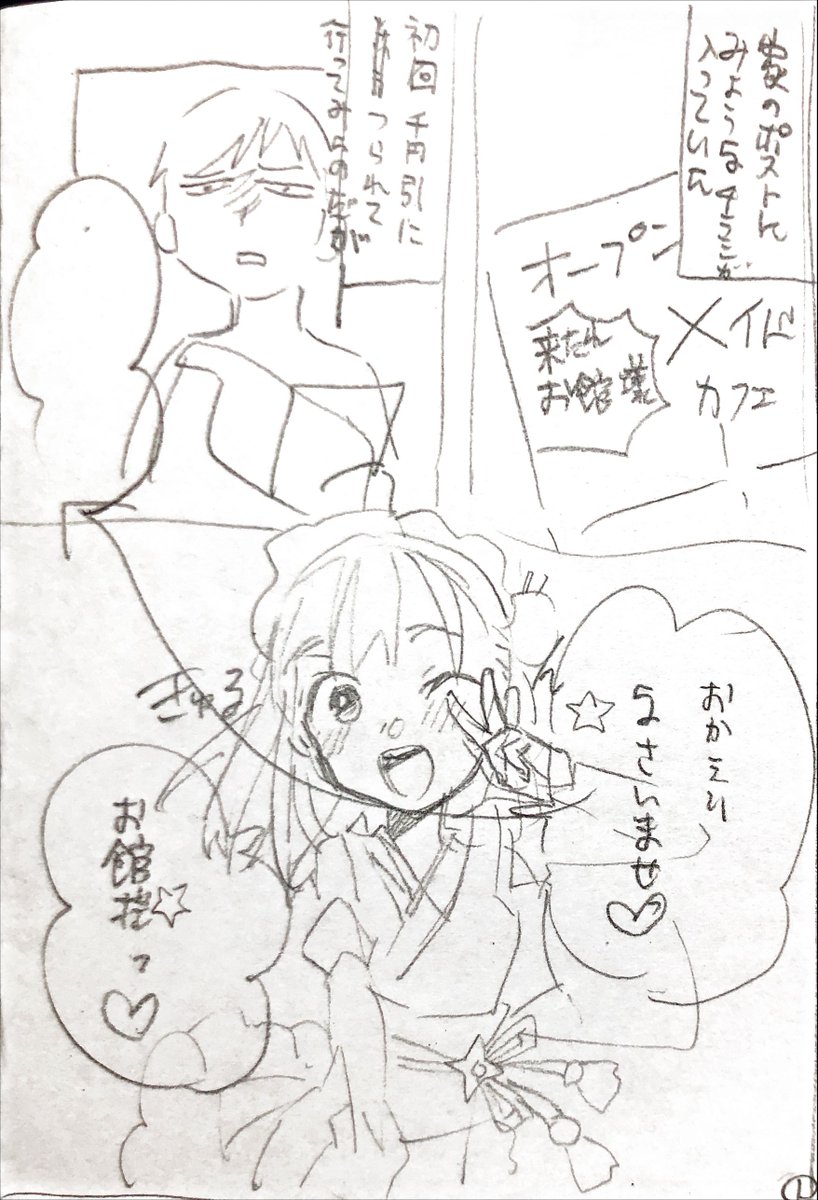 家のポストに
みょうなチラシが
入っていた
オープン
メイド
カフェ
来たれ
お館様
初回千円引に
つられて
行ってみたのだが
おかえり
なさいませ♡
☆
きゅる
お館様☆っ♡